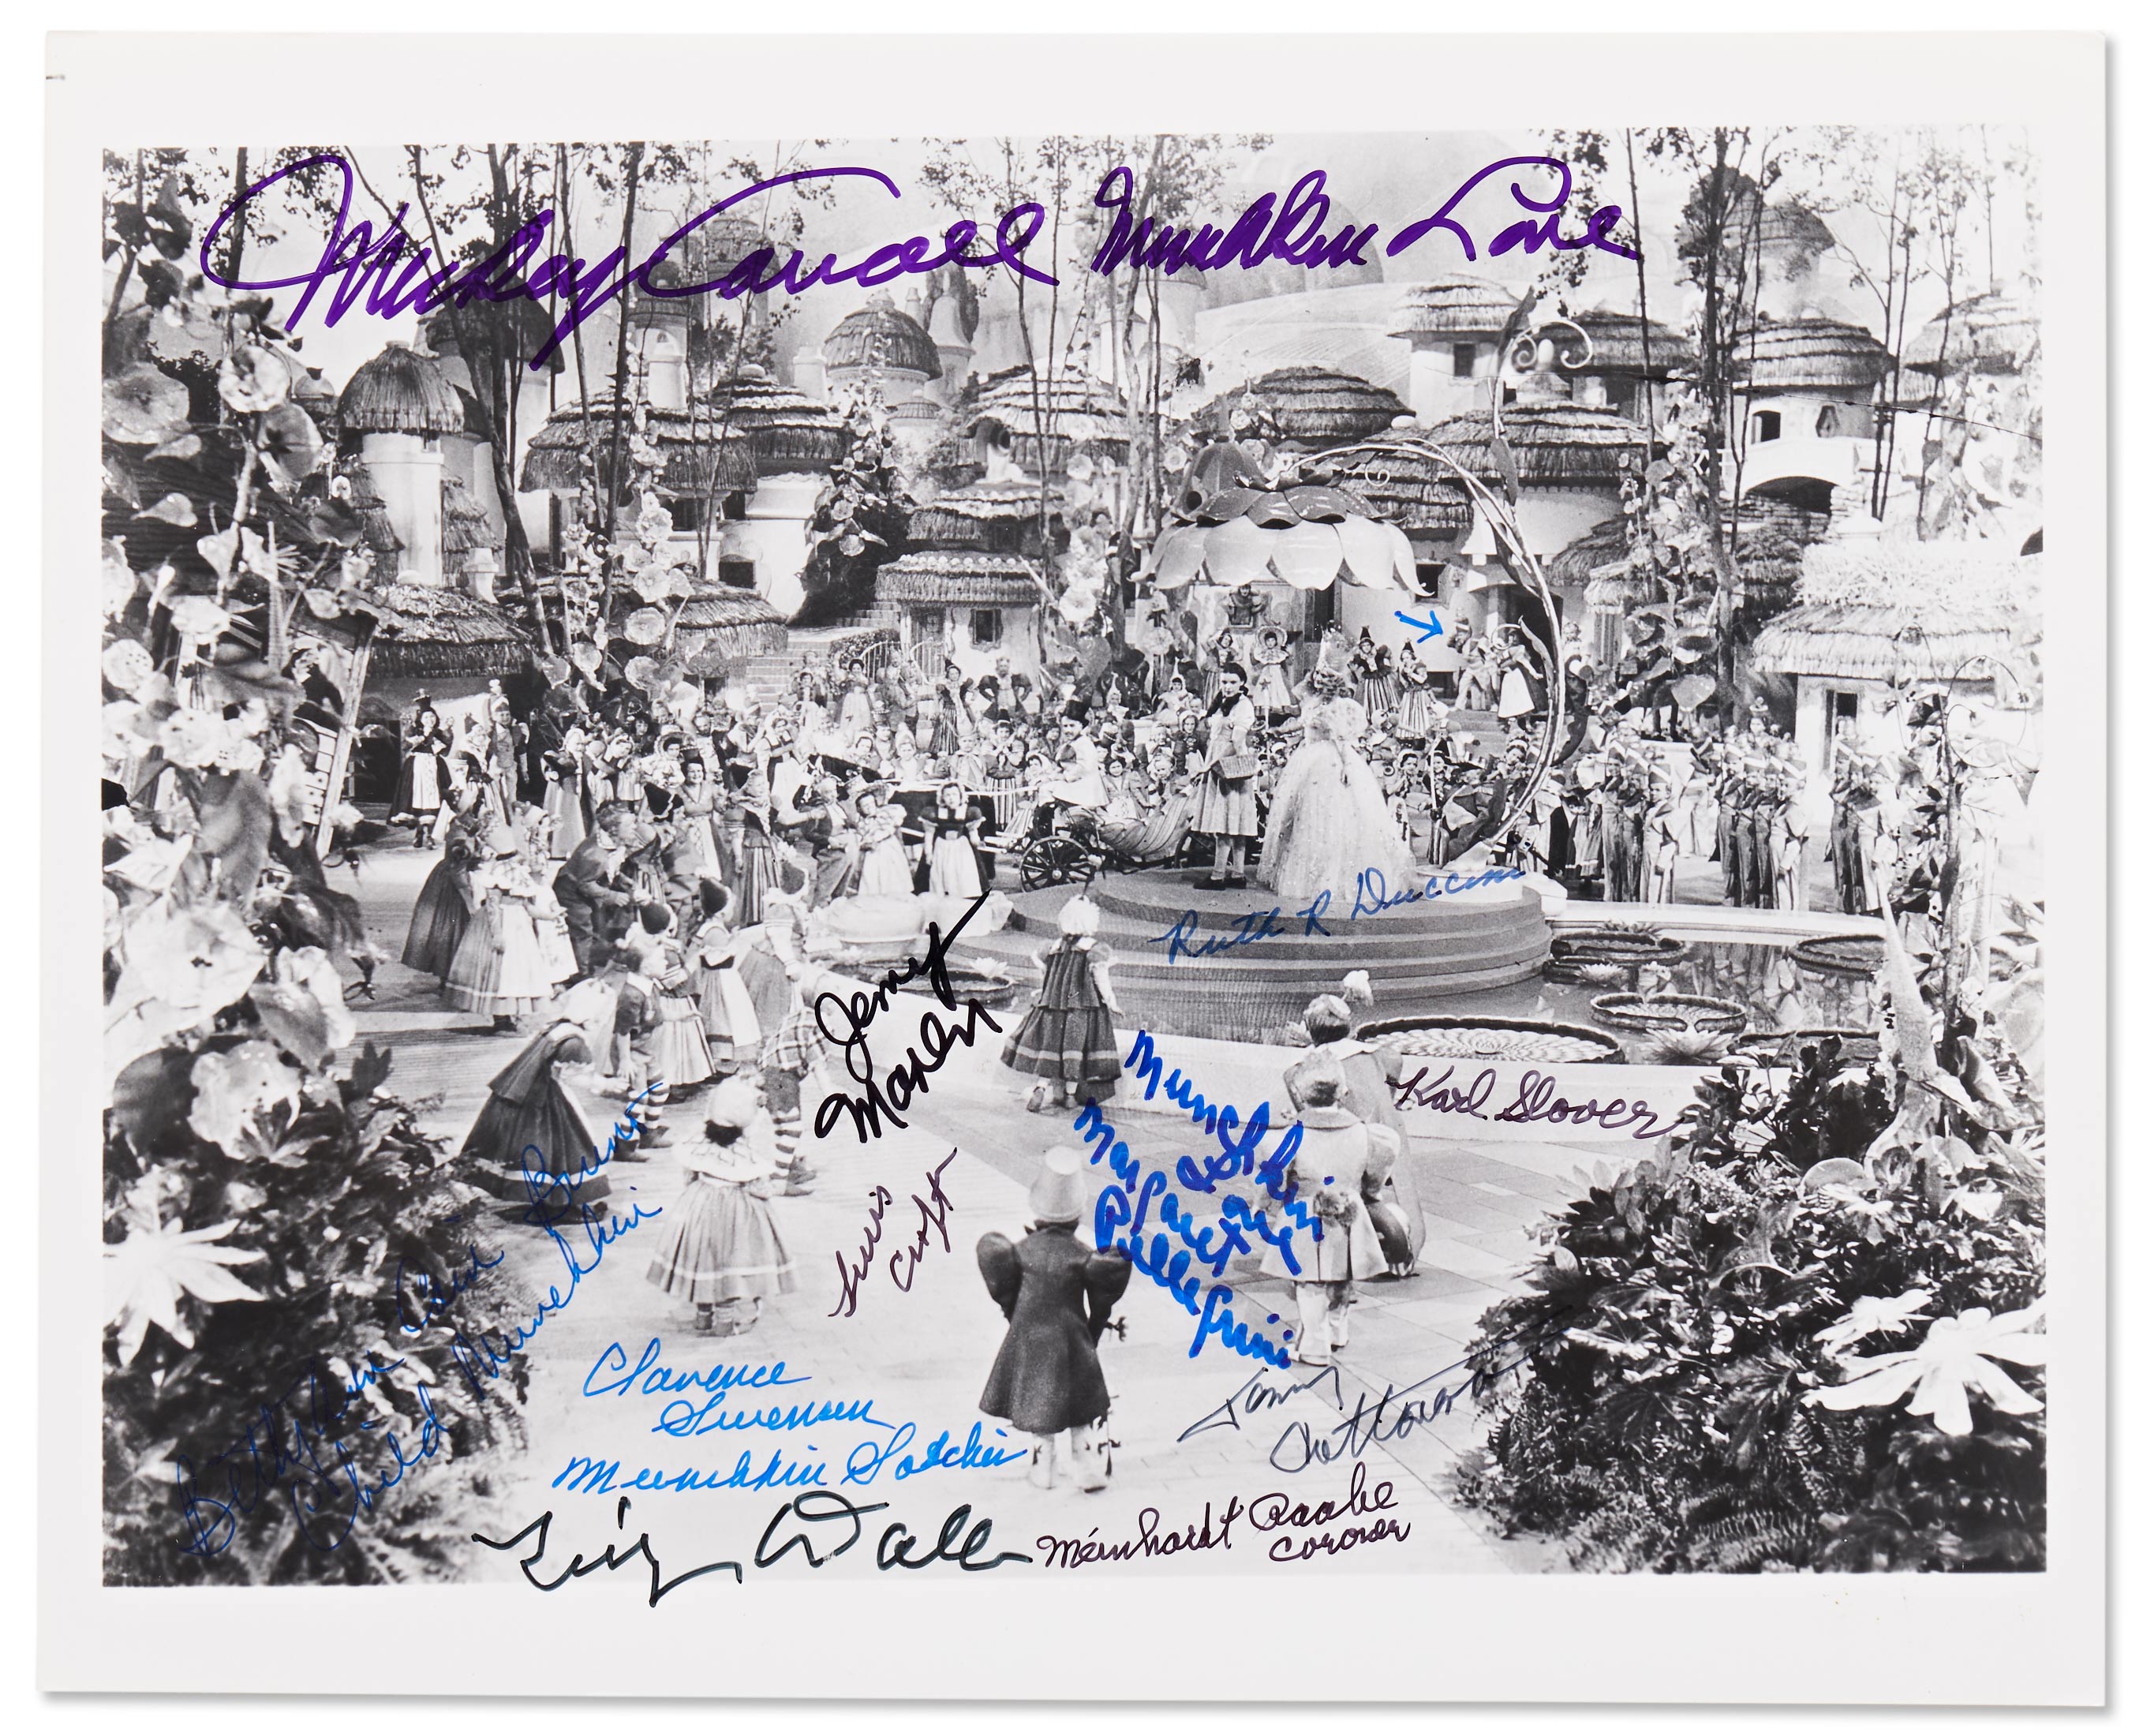 Mickey Carroll Munchkin Love
Ruth R Duccini
Jerry
Maren
Munchkin
Margaret
Pellegrini
Karl Slover
Lewis
Croft
Betty Ann Cain Bruno
Child Munchkin
Clarence
Swensen
Munchkin Soldier
Tommy
Cottonaro
Tiny Doll
Meinhardt Raabe
Coroner